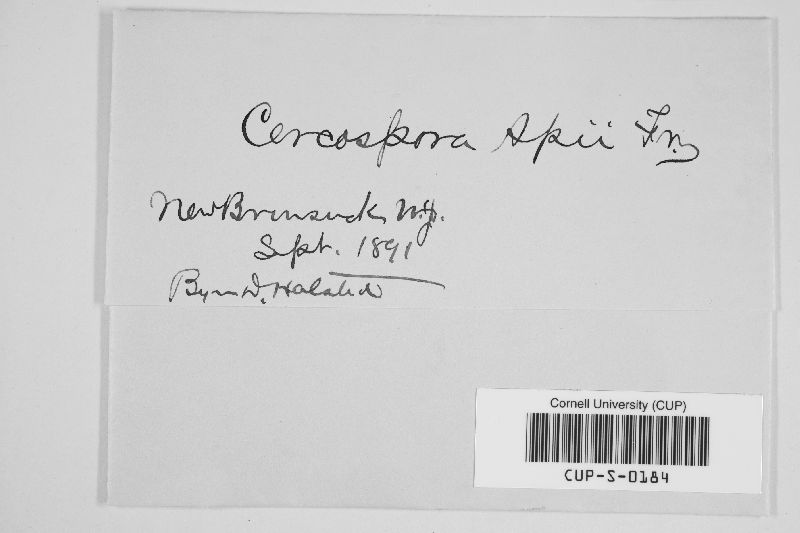 Cercospora Apii Frs
New Brunswick, N.J.
Sept. 1891
Byron D. Halsted
Cornell University (CUP)
CUP-S-0184